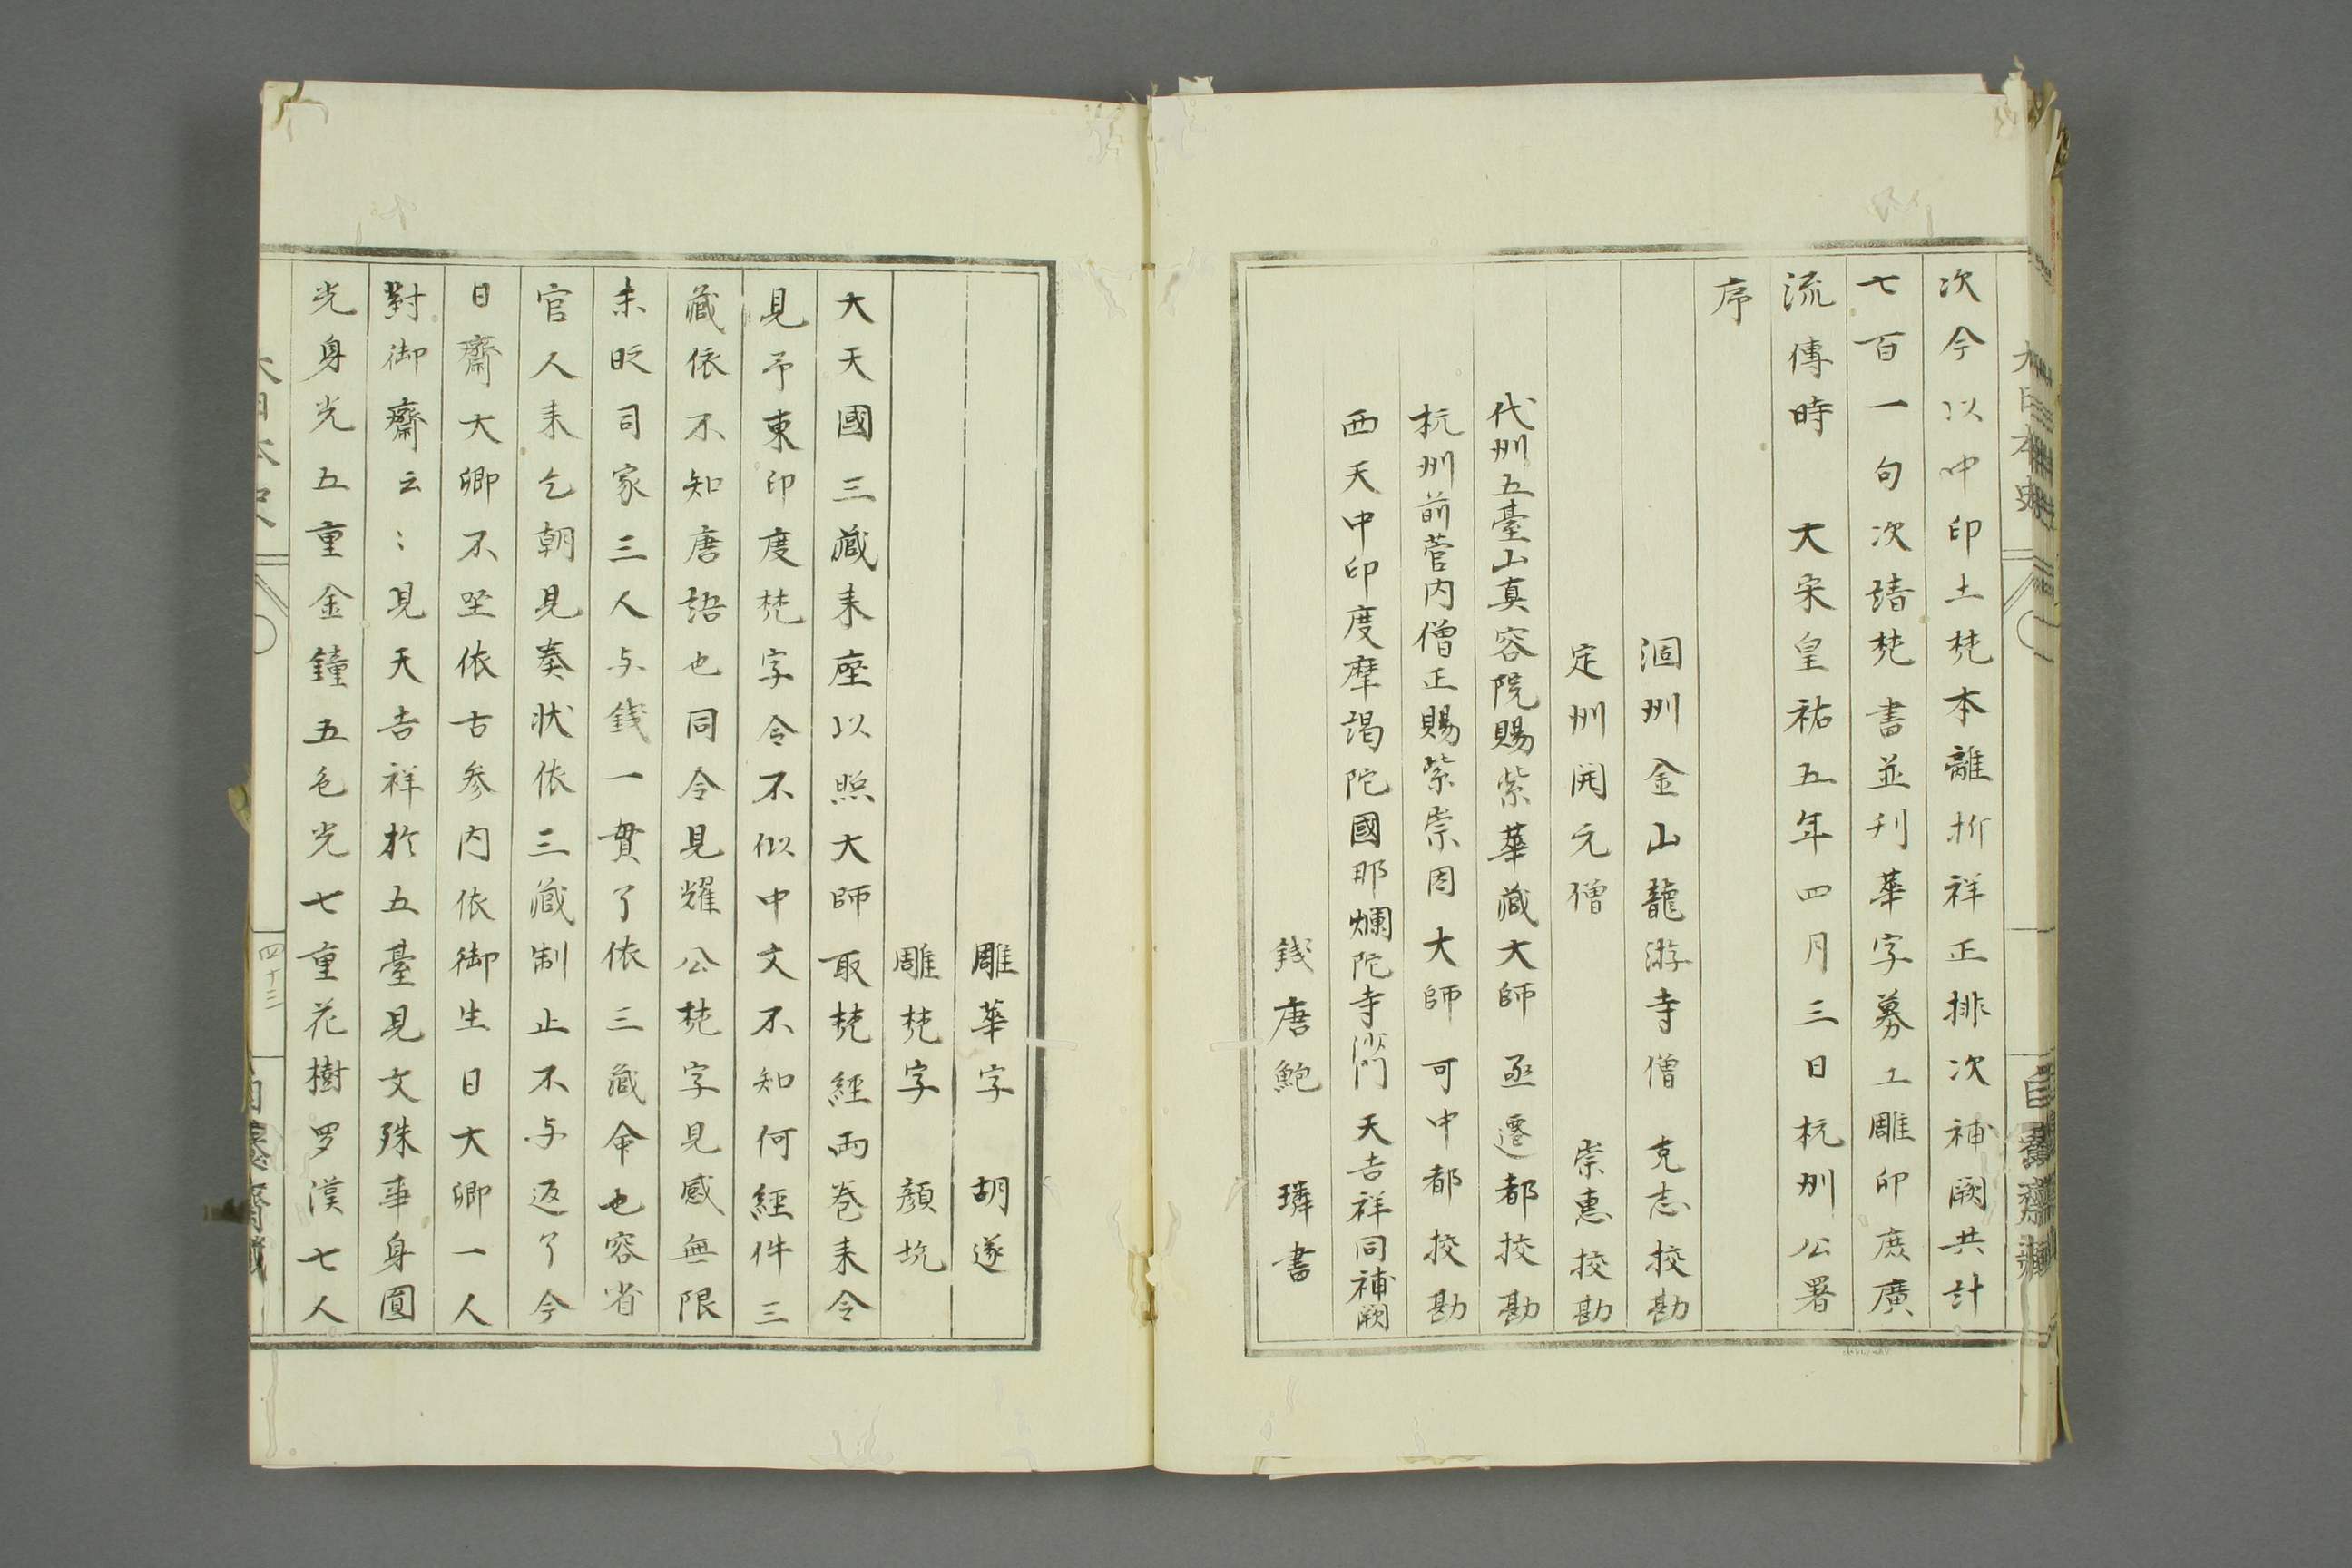 次今以中印土梵本離析祥正排次補闕共計
七百一句次請梵書並刊華字募工雕印庶廣
流傳時　大宋皇祐五年四月三日杭州公署
序
涸州金山龍游寺僧　克志挍勘
定州開元僧　崇惠挍勘
代州五臺山真容院賜紫華藏大師　亟遷都挍勘
杭州前菅内僧正賜紫崇因大師　可中都挍勘
西天中印度摩竭陀國那爛陀寺沙門　天吉祥同補闕
錢唐鮑　璘書
雕華字　胡遂
雕梵字　顔坑
大天國三藏来座以照大師取梵經両巻来令
見予東印度梵字令不似中文不知何經件三
藏依不知唐語也同令見耀公梵字見感無限
未时司家三人与錢一貫了依三藏命也容省
官人来乞朝見奏状依三藏制止不与返了今
日齋大卿不坐依古参内依御生日大卿一人
對御齋云〻見天吉祥於五臺見文殊事身圓
光身光五重金鐘五色光七重花樹罗漢七人
四十三